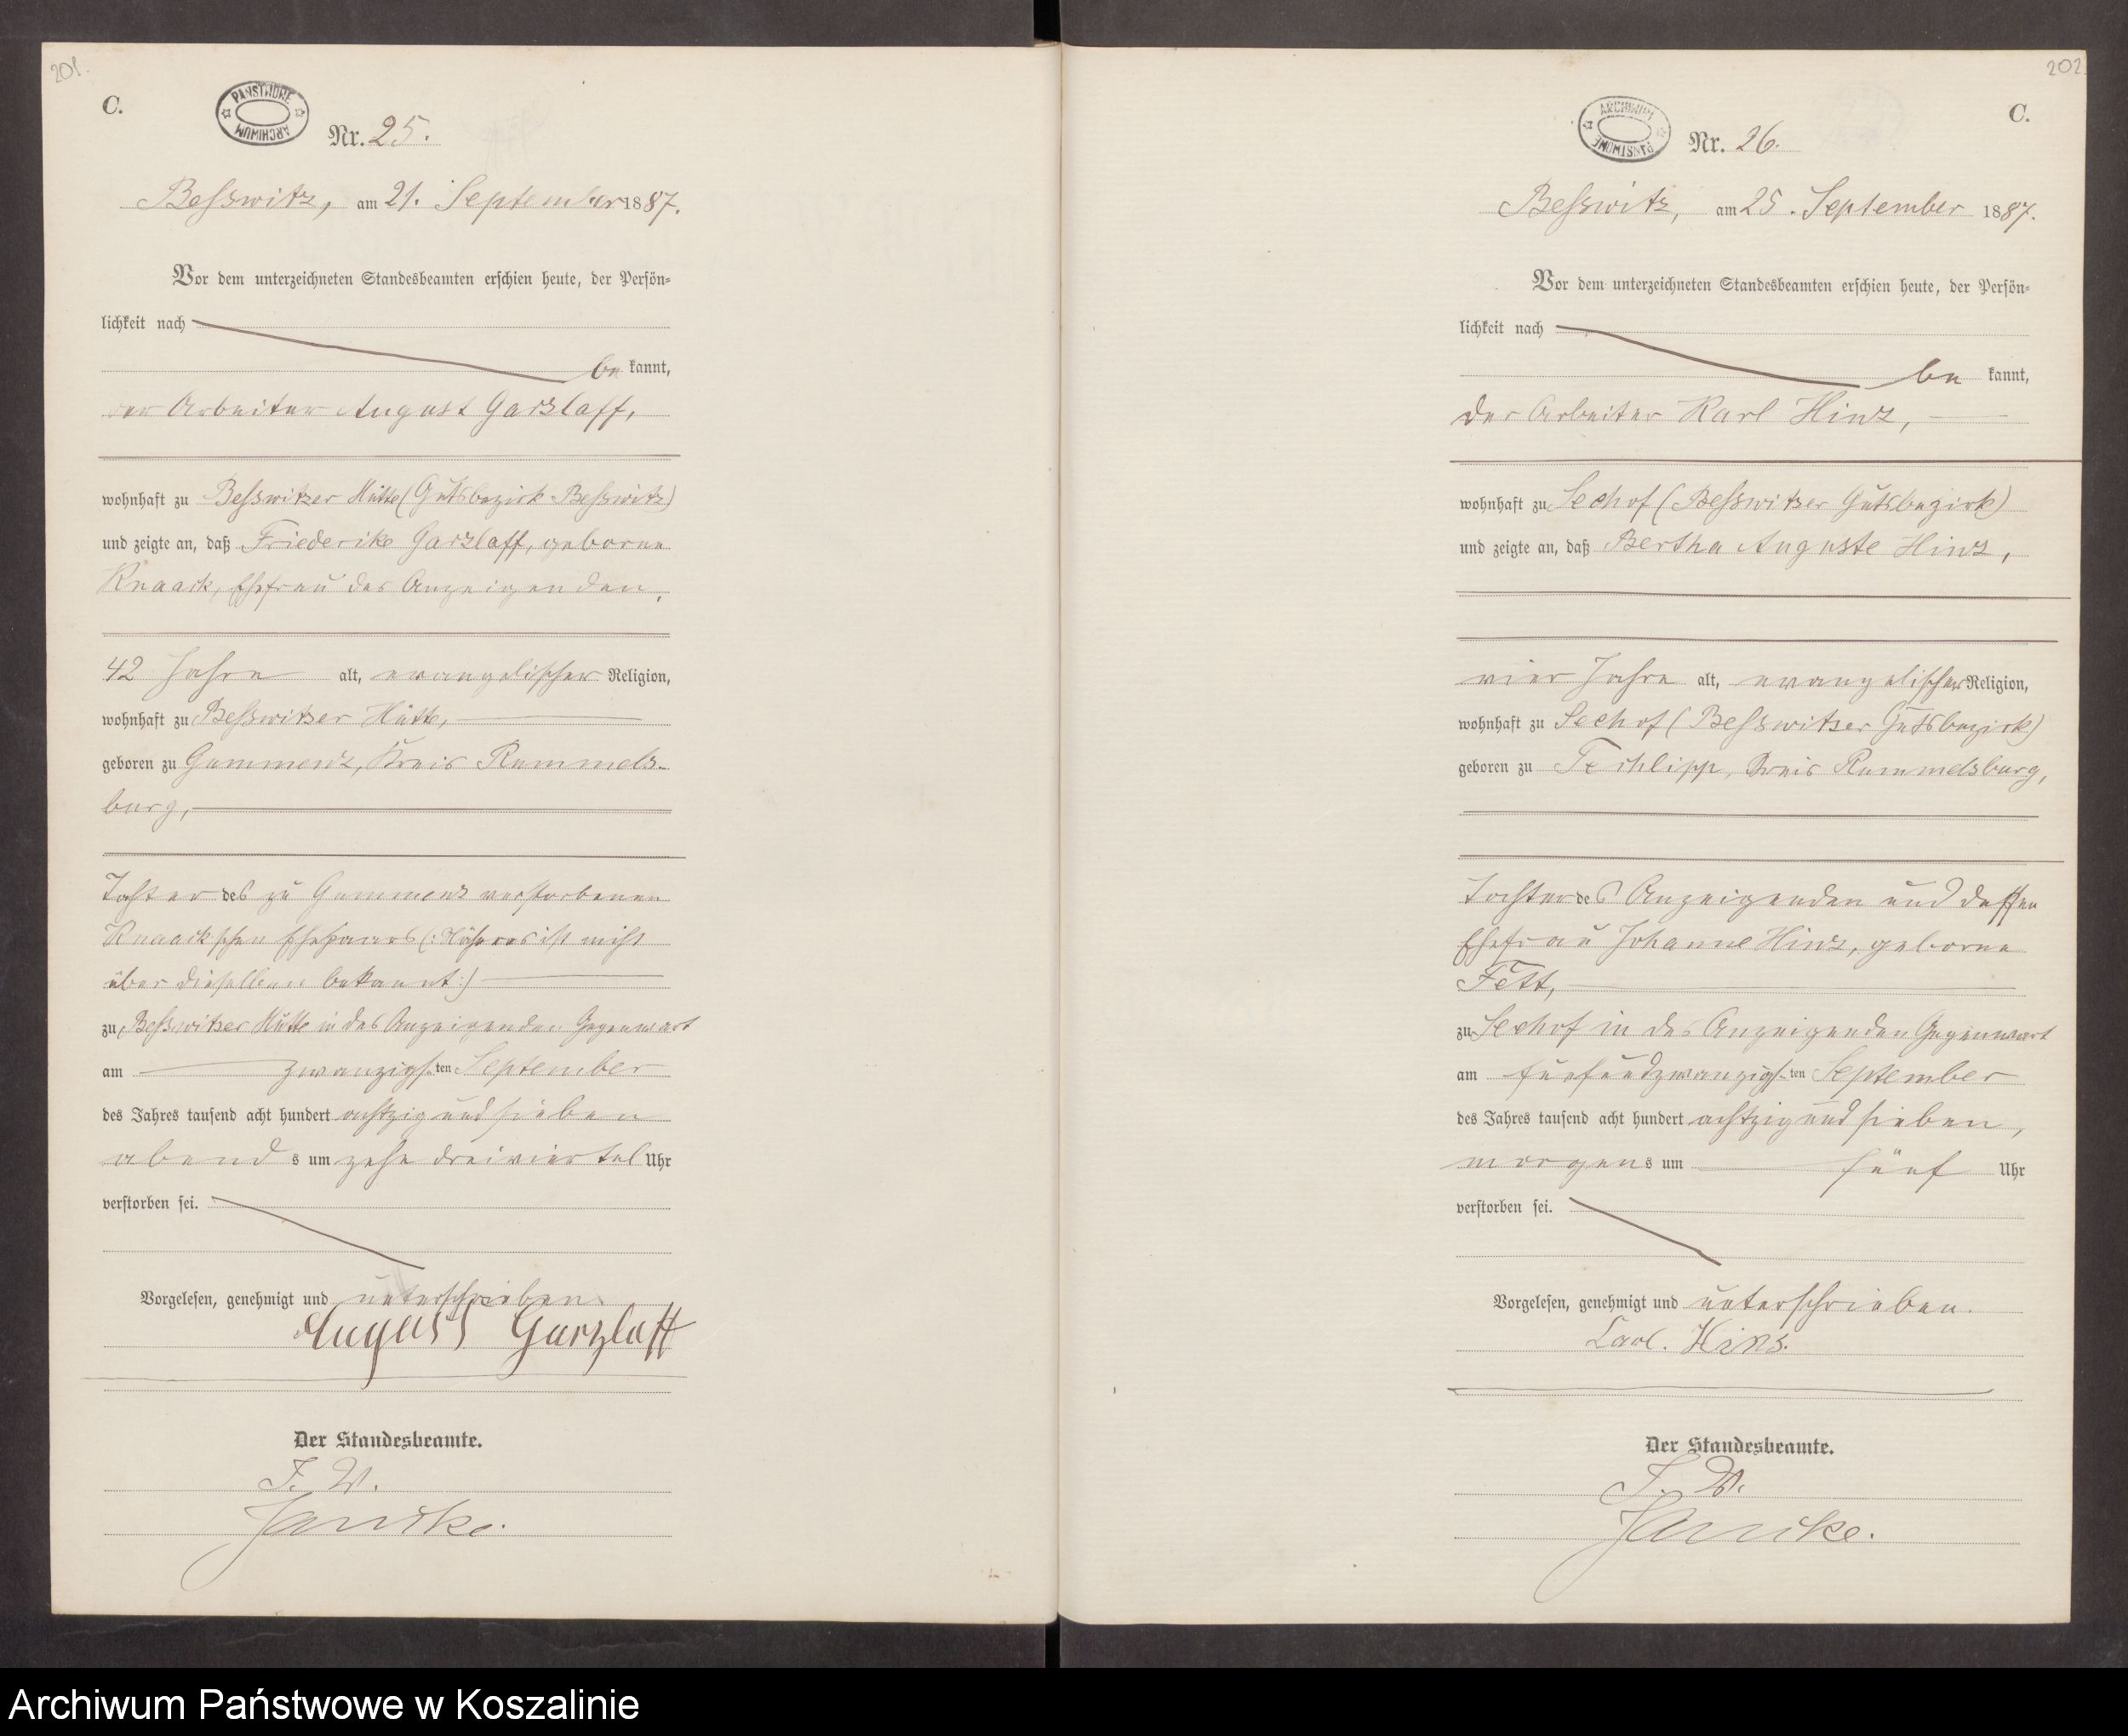 201.
C.
PAŃSTWOWE ARCHIWUM
Nr. 25.
Beßwitz, am 21. September 1887.
Vor dem unterzeichneten Standesbeamten erschien heute, der Persön=
lichkeit nach
be kannt,
der Arbeiter August Garzlaff,
wohnhaft zu Beßwitzer Hütte (Gutsbezirk Beßwitz)
und zeigte an, daß Friederike Garzlaff, geborne
Knaack, Ehefrau des Anzeigenden,
42 Jahre alt, evangelischer Religion,
wohnhaft zu Beßwitzer Hütte,
geboren zu Gummenz, Kreis Rummels-
burg,
Tochter des zu Gummenz verstorbenen
Knaack'schen Ehepaars (: Näheres ist nicht
über dieselben bekannt :)
zu Beßwitzer Hütte in des Anzeigenden Gegenwart
am zwanzigs-ten September
des Jahres tausend acht hundert achtzig und sieben
abends um zehn dreiviertel Uhr
verstorben sei.
Vorgelesen, genehmigt und unterschrieben.
August Garzlaff
Der Standesbeamte.
I. V.
Janicke.
202.
C.
ARCHIWUM PAŃSTWOWE
Nr. 26.
Beßwitz, am 25. September 1887.
Vor dem unterzeichneten Standesbeamten erschien heute, der Persön=
lichkeit nach
be kannt,
der Arbeiter Karl Hinz,
wohnhaft zu Seehof (Beßwitzer Gutsbezirk)
und zeigte an, daß Bertha Auguste Hinz,
vier Jahre alt, evangelischer Religion,
wohnhaft zu Seehof (Beßwitzer Gutsbezirk)
geboren zu Techlipp, Kreis Rummelsburg,
Tochter des Anzeigenden und dessen
Ehefrau Johanne Hinz, geborne
Fett,
zu Seehof in des Anzeigenden Gegenwart
am fünfundzwanzigs-ten September
des Jahres tausend acht hundert achtzig und sieben,
morgens um fünf Uhr
verstorben sei.
Vorgelesen, genehmigt und unterschrieben.
Carl. Hinz.
Der Standesbeamte.
I. V.
Janicke.
Archiwum Państwowe w Koszalinie